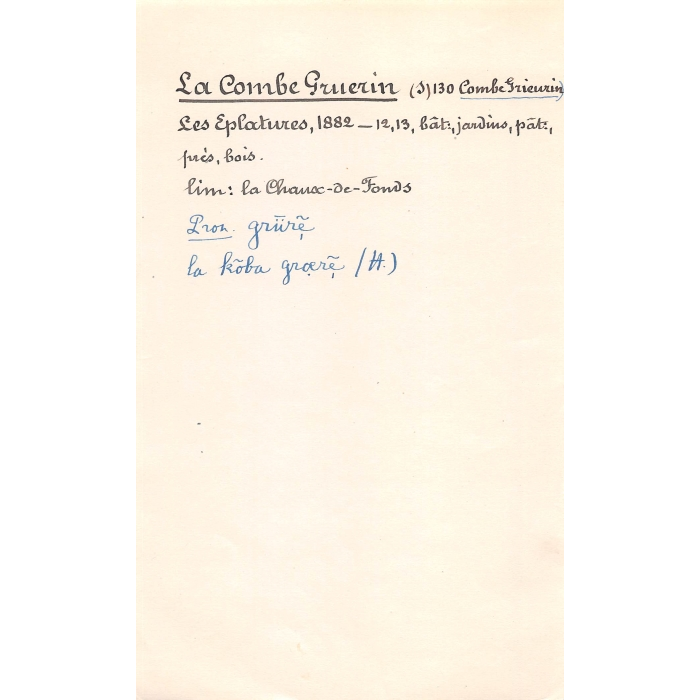 La Combe Gruerin (S) 130 Combe Grieurin
Les Eplatures, 1882 – 12, 13, bât:, jardins, pât:,
prés, bois.
lim: la Chaux-de-Fonds
Pron. grürẹ̃
la kõba grœ̣rẹ̃ (H.)